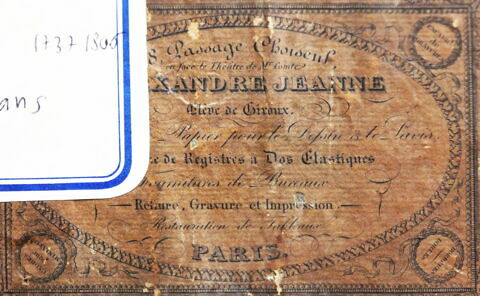 1737 1806
ans
8 Passage Choiseul,
en face le Théâtre de Mr Comte
XANDRE JEANNE
Elève de Giroux.
Papier pour le Dessin & le Lavis.
de Registres à Dos Elastiques
de Bureaux
Reliure, Gravure et Impression
Restauration de Tableaux
PARIS.